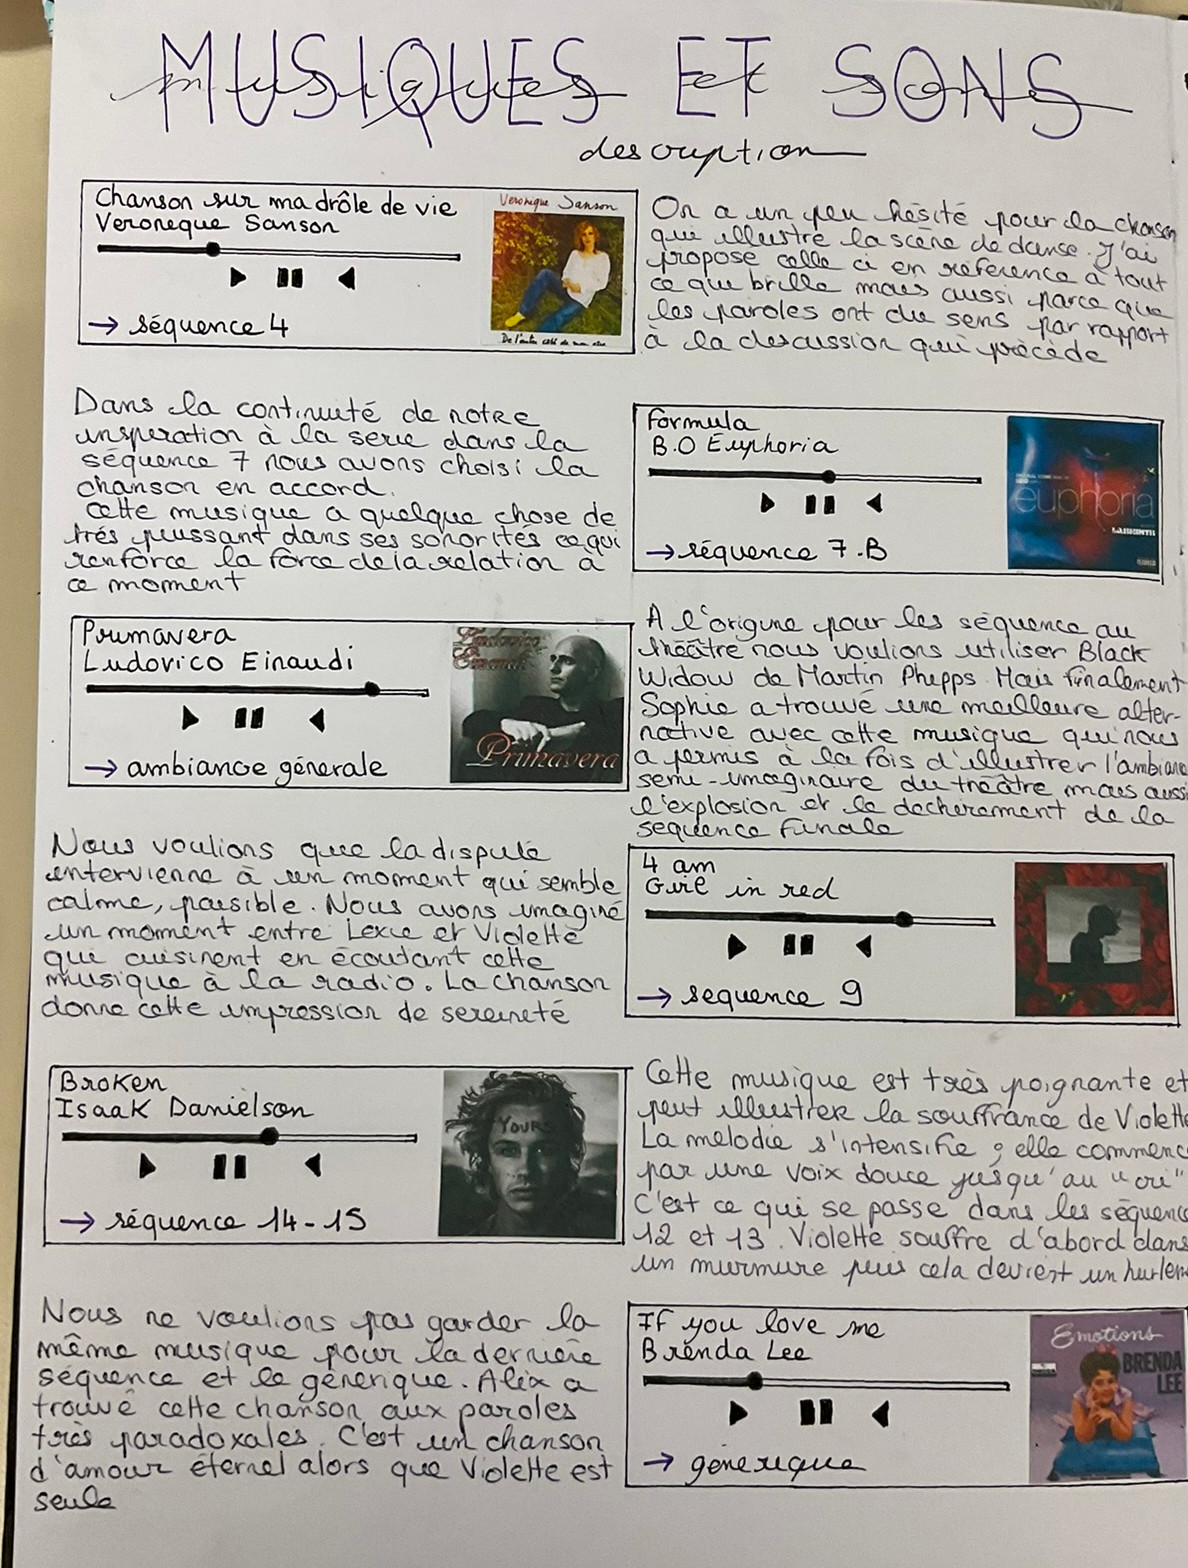 MUSIQUES ET SONS
musiques et sons
description
Chanson sur ma drôle de vie
Veroneque Sanson
→ séquence 4
Veronique Sanson
De l'autre côté de mon rêve
On a un peu hésité pour la chanson
qui illustre la scène de danse. J'ai
propose celle ci en référence à tout
ce que brille mais aussi parce que
les paroles ont du sens par rapport
à la descussion qui précède
Dans la continuité de notre
inspiration à la serie dans la
séquence 7 nous avons choisi la
chanson en accord.
Cette musique a quelque chose de
trés puissant dans ses sonorités ce qui
renforce la force de la relation à
ce moment
Formula
B.O Euphoria
→ séquence 7.B
euphoria
LABRINTH
Primavera
Ludovico Einaudi
→ ambiance génerale
Ludovico
Einaudi
Primavera
A l'origine pour les séquence au
théâtre nous voulions utiliser Black
Widow de Martin Phipps. Mais finalement
Sophie a trouvé une meilleure alter-
native avec cette musique qui nous
a permis à la fois d'illustrer l'ambiance
semi-imaginaire du théâtre mais aussi
l'explosion et le dechirement de la
sequence finale
Nous voulions que la dispute
intervienne à un moment qui semble
calme, paisible. Nous avons imaginé
un moment entre Lexie et Violette
qui cuisinent en écoutant cette
musique à la radio. La chanson
donne cette impression de sereineté
4 am
Girl in red
→ sequence 9
Broken
Isaak Danielson
→ séquence 14-15
YOURS
Cette musique est très poignante et
peut illustrer la souffrance de Violette
La melodie s'intensifie ; elle commence
par une voix douce jusqu'au "cri"
C'est ce qui se passe dans les séquence
12 et 13. Violette souffre d'abord dans
un murmure puis cela devient un hurlem
Nous ne voulions pas garder la
même musique pour la dernière
séquence et le génerique. Alix a
trouvé cette chanson aux paroles
très paradoxales. C'est un chanson
d'amour éternel alors que Violette est
seule
If you love me
Brenda Lee
→ génerique
Emotions
BRENDA
LEE